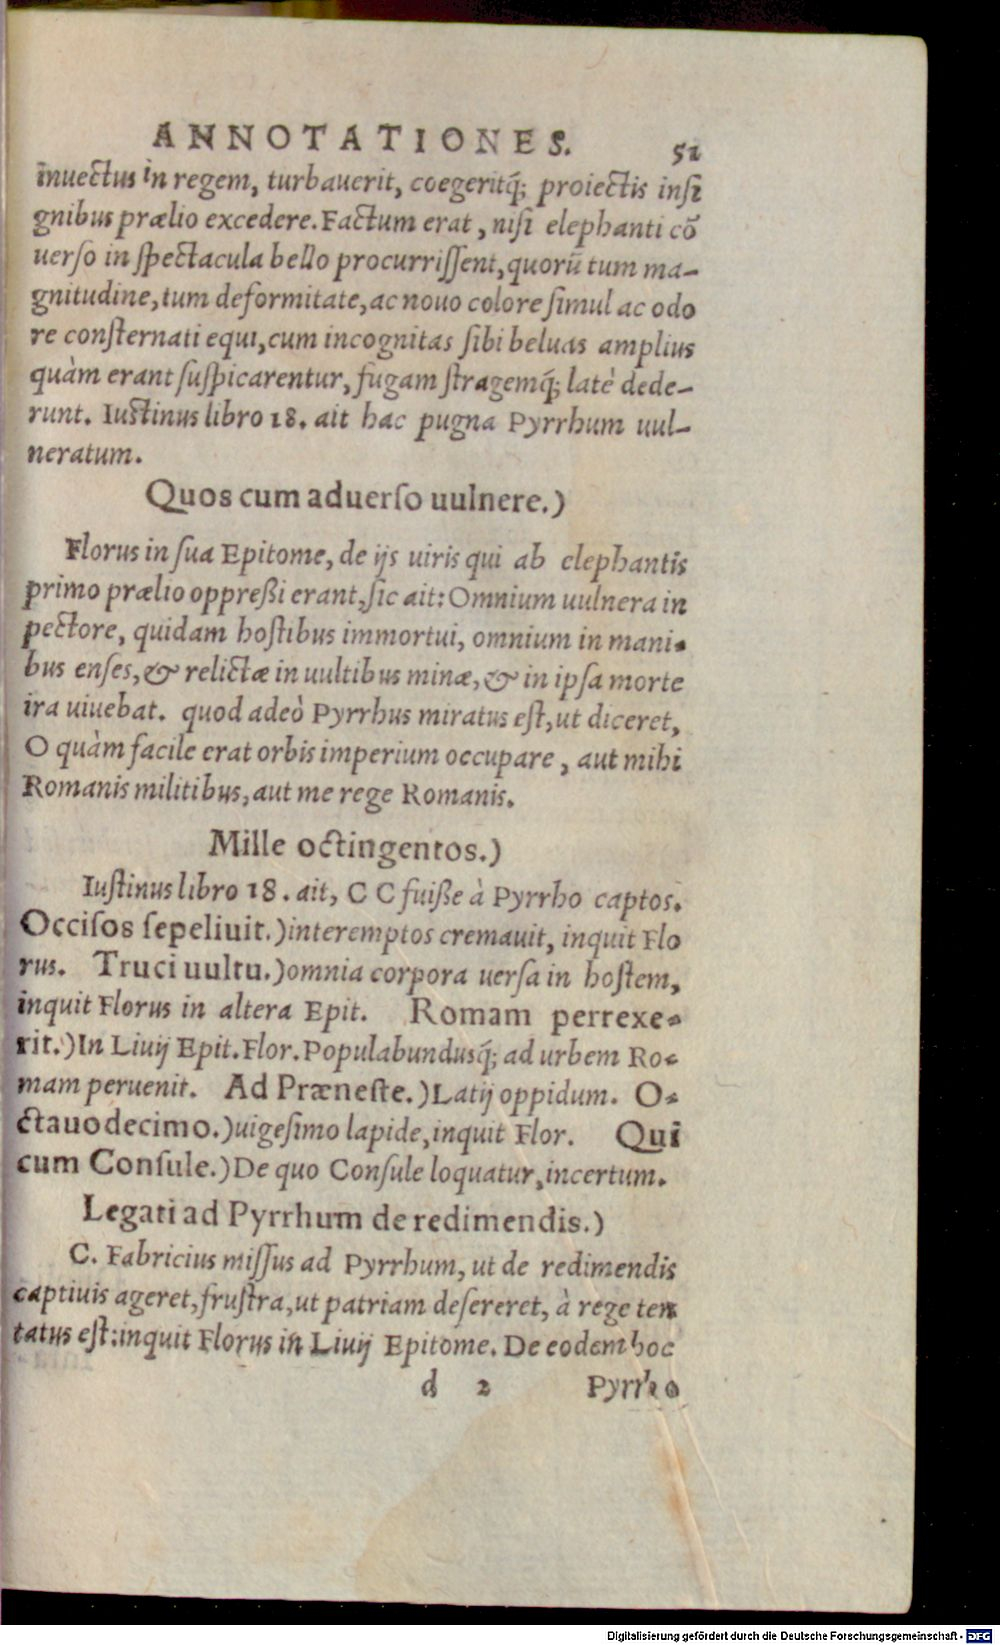 ANNOTATIONES. 52
inuectus in regem, turbauerit, coegeritq́; proiectis insi
gnibus prælio excedere. Factum erat, nisi elephanti cō
uerso in spectacula bello procurrissent, quorū tum ma-
gnitudine, tum deformitate, ac nouo colore simul ac odo
re consternati equi, cum incognitas sibi beluas amplius
quàm erant suspicarentur, fugam stragemq́; latè dede-
runt. Iustinus libro 18. ait hac pugna Pyrrhum uul-
neratum.
Quos cum aduerso uulnere.)
Florus in sua Epitome, de ijs uiris qui ab elephantis
primo prælio oppreßi erant, sic ait: Omnium uulnera in
pectore, quidam hostibus immortui, omnium in mani-
bus enses, & relictæ in uultibus minæ, & in ipsa morte
ira uiuebat. quod adeò Pyrrhus miratus est, ut diceret,
O quàm facile erat orbis imperium occupare, aut mihi
Romanis militibus, aut me rege Romanis.
Mille octingentos.)
Iustinus libro 18. ait, C C fuiße à Pyrrho captos.
Occisos sepeliuit.) interemptos cremauit, inquit Flo
rus. Truci uultu.) omnia corpora uersa in hostem,
inquit Florus in altera Epit. Romam perrexe-
rit.) In Liuij Epit. Flor. Populabundusq́; ad urbem Ro-
mam peruenit. Ad Præneste.) Latij oppidum. O-
ctauodecimo.) uigesimo lapide, inquit Flor. Qui
cum Consule.) De quo Consule loquatur, incertum.
Legati ad Pyrrhum de redimendis.)
C. Fabricius missus ad Pyrrhum, ut de redimendis
captiuis ageret, frustra, ut patriam desereret, à rege ten
tatus est: inquit Florus in Liuij Epitome. De eodem hoc
d 2 Pyrrho
Digitalisierung gefördert durch die Deutsche Forschungsgemeinschaft - DFG